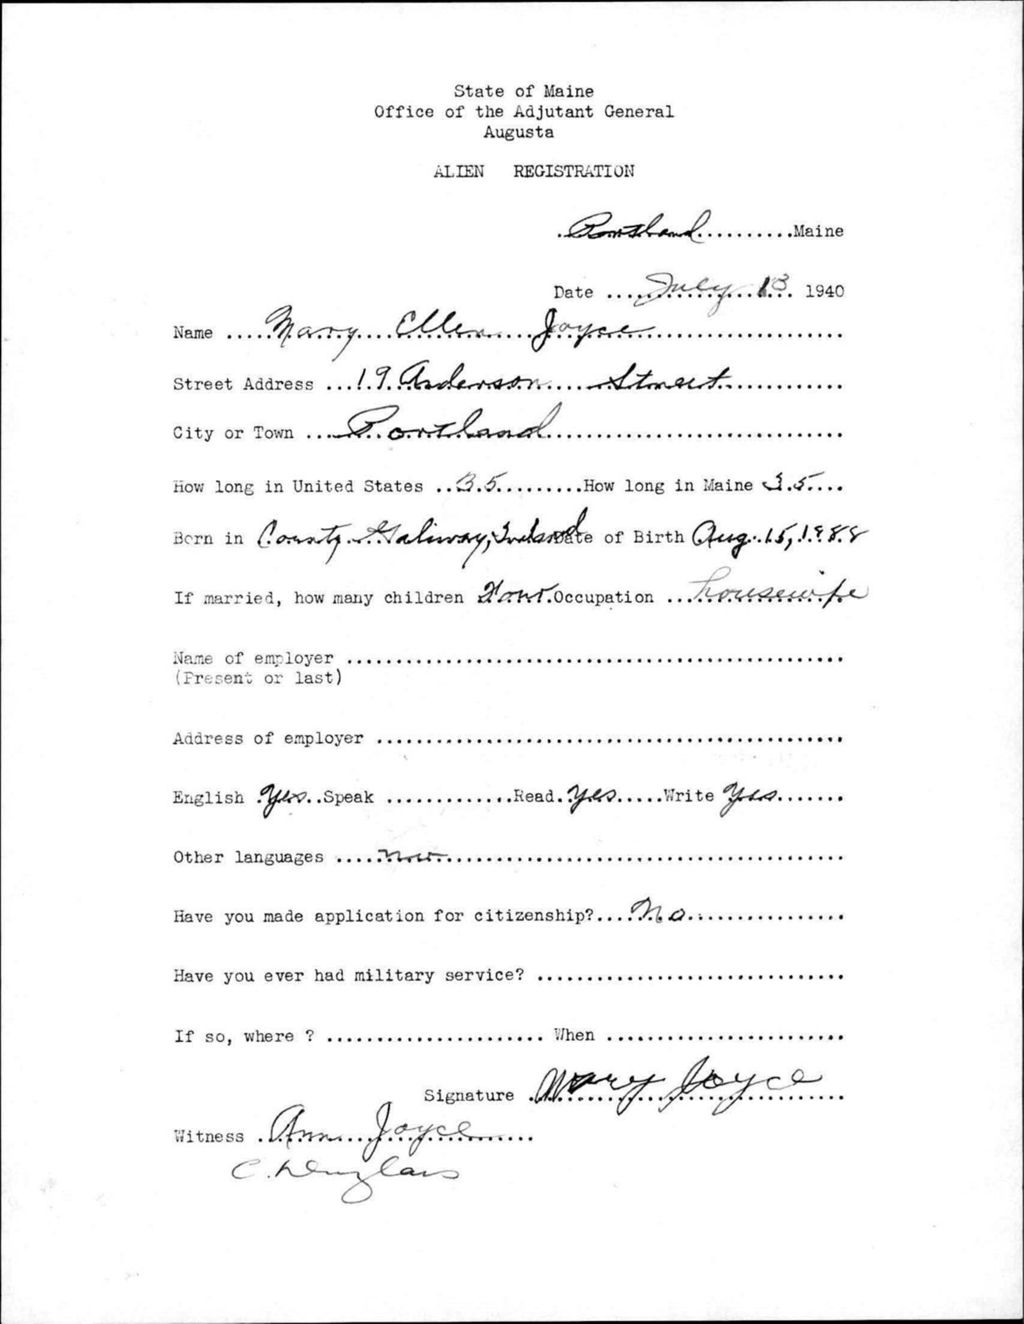 State of Maine
Office of the Adjutant General
Augusta
ALIEN REGISTRATION
Portland Maine
Date July 13 1940
Name Mary Ellen Joyce
Street Address 19 Anderson Street
City or Town Portland
How long in United States 35 How long in Maine 35
Born in County Galway, Ireland Date of Birth Aug. 15, 1888
If married, how many children Four Occupation housewife
Name of employer
(Present or last)
Address of employer
English Yes Speak Read Yes Write Yes
Other languages
Have you made application for citizenship? No
Have you ever had military service?
If so, where ? When
Signature Mary Joyce
Witness Ann Joyce
C.